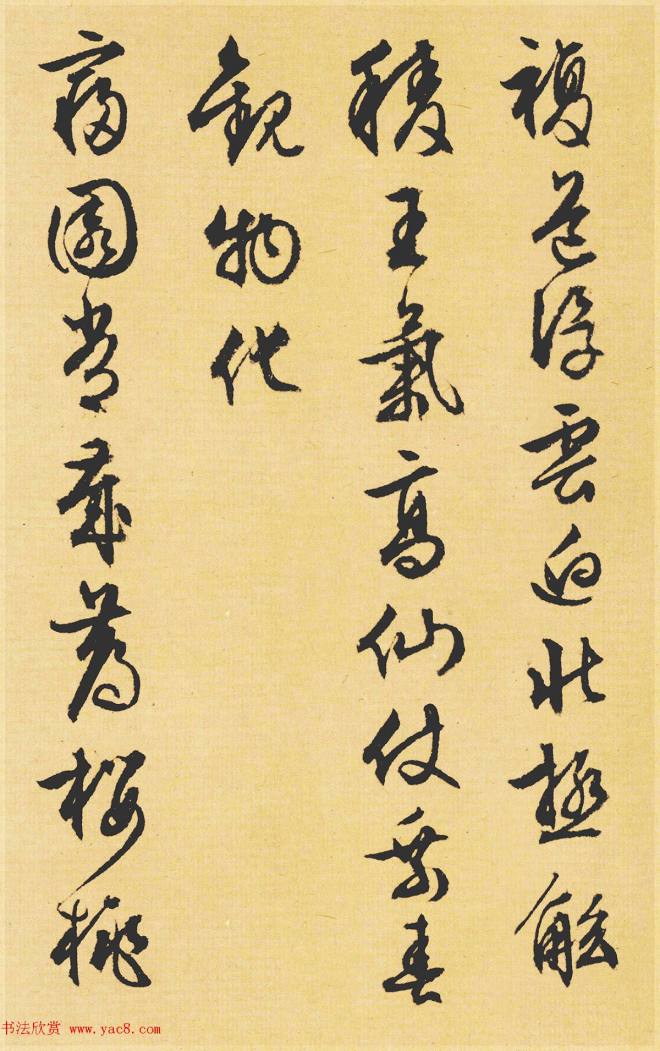 複道浮雲迴北極觚
稜王氣高仙仗乘春
觀物化
寢園常歲薦櫻桃
书法欣赏 www.yac8.com